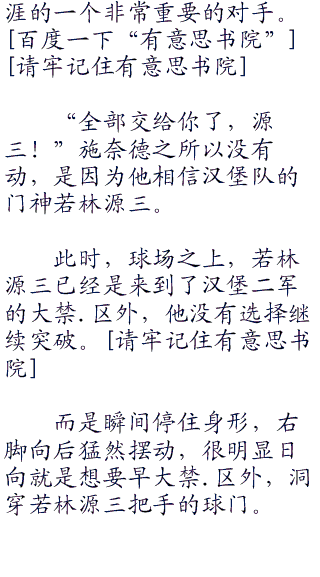 涯的一个非常重要的对手。
[百度一下“有意思书院”]
[请牢记住有意思书院]
“全部交给你了，源
三！”施奈德之所以没有
动，是因为他相信汉堡队的
门神若林源三。
此时，球场之上，若林
源三已经是来到了汉堡二军
的大禁.区外，他没有选择继
续突破。[请牢记住有意思书
院]
而是瞬间停住身形，右
脚向后猛然摆动，很明显日
向就是想要早大禁.区外，洞
穿若林源三把手的球门。